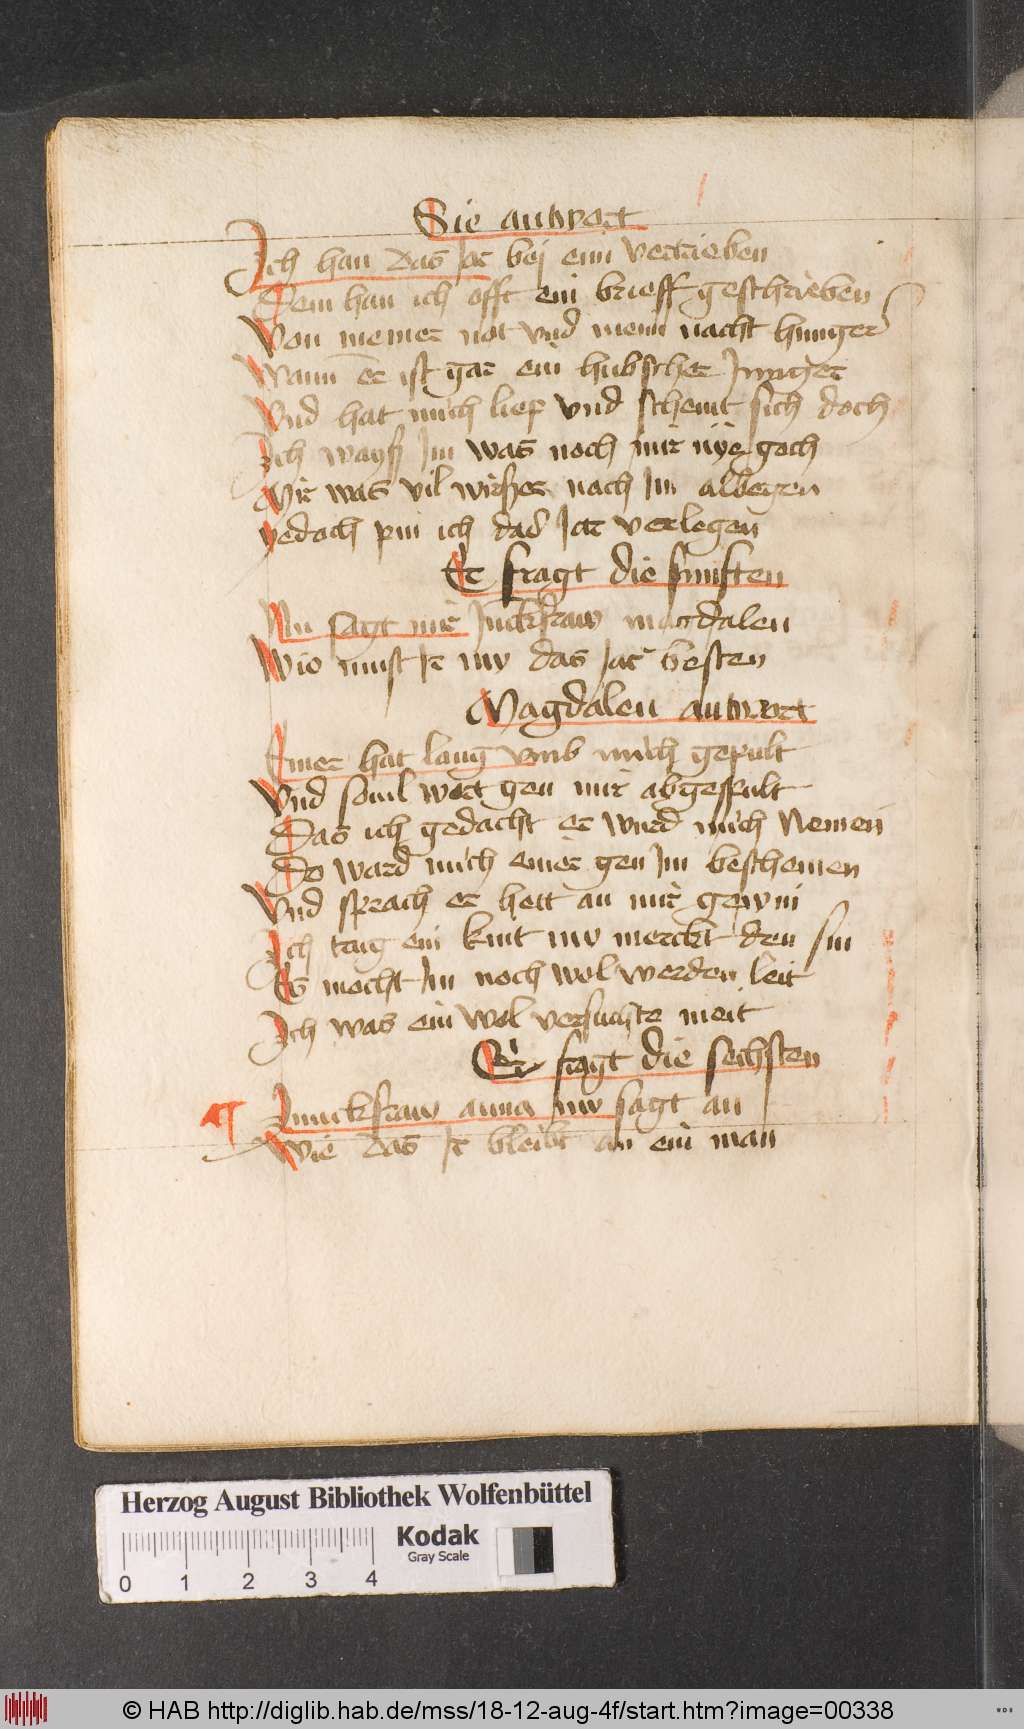 Sie antwort
Ich han das Jar bej eim vertrieben
Dem han ich offt ein brieff geschrieben
Von meiner not vnd meim nacht hunger
Wann er ist gar ein hubscher Junger
Vnd hat mich liep vnd schemt sich doch
Ich wayß Im was noch mir nye goch
Mir was vil wirßer nach Im albegen
yedoch pin ich daß Jar verlegen
Er fragt die funften
Nu sagt mir Junckfraw magdalen
Wie must Ir nw das Jar besten
Magdalen antwort
Einer hat lang vmb mich gepult
Vnd souil wort gen mir abgespult
Das ich gedacht er wurd mich Nemen
Do ward mich einer gen Im beschemen
Vnd sprach er hett an mir gewin
Ich trug ein kint nw merckt den sin
Es mocht Im noch wol werden leit
Ich was ein wol versuchte meit
Er fragt die sechsten
Junckfraw anna nw sagt an
Wie das Ir bleibt an ein man
Herzog August Bibliothek Wolfenbüttel
Kodak
Gray Scale
0 1 2 3 4
© HAB http://diglib.hab.de/mss/18-12-aug-4f/start.htm?image=00338